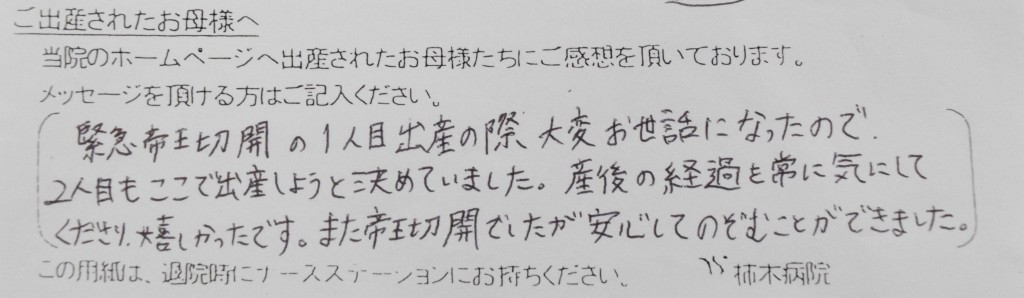 ご出産されたお母様へ
当院のホームページへ出産されたお母様たちにご感想を頂いております。
メッセージを頂ける方はご記入ください。
緊急帝王切開の1人目出産の際、大変お世話になったので、
2人目もここで出産しようと決めていました。産後の経過も常に気にして
くださり、嬉しかったです。また帝王切開でしたが安心してのぞむことができました。
この用紙は、退院時にナースステーションにお持ちください。 柿木病院